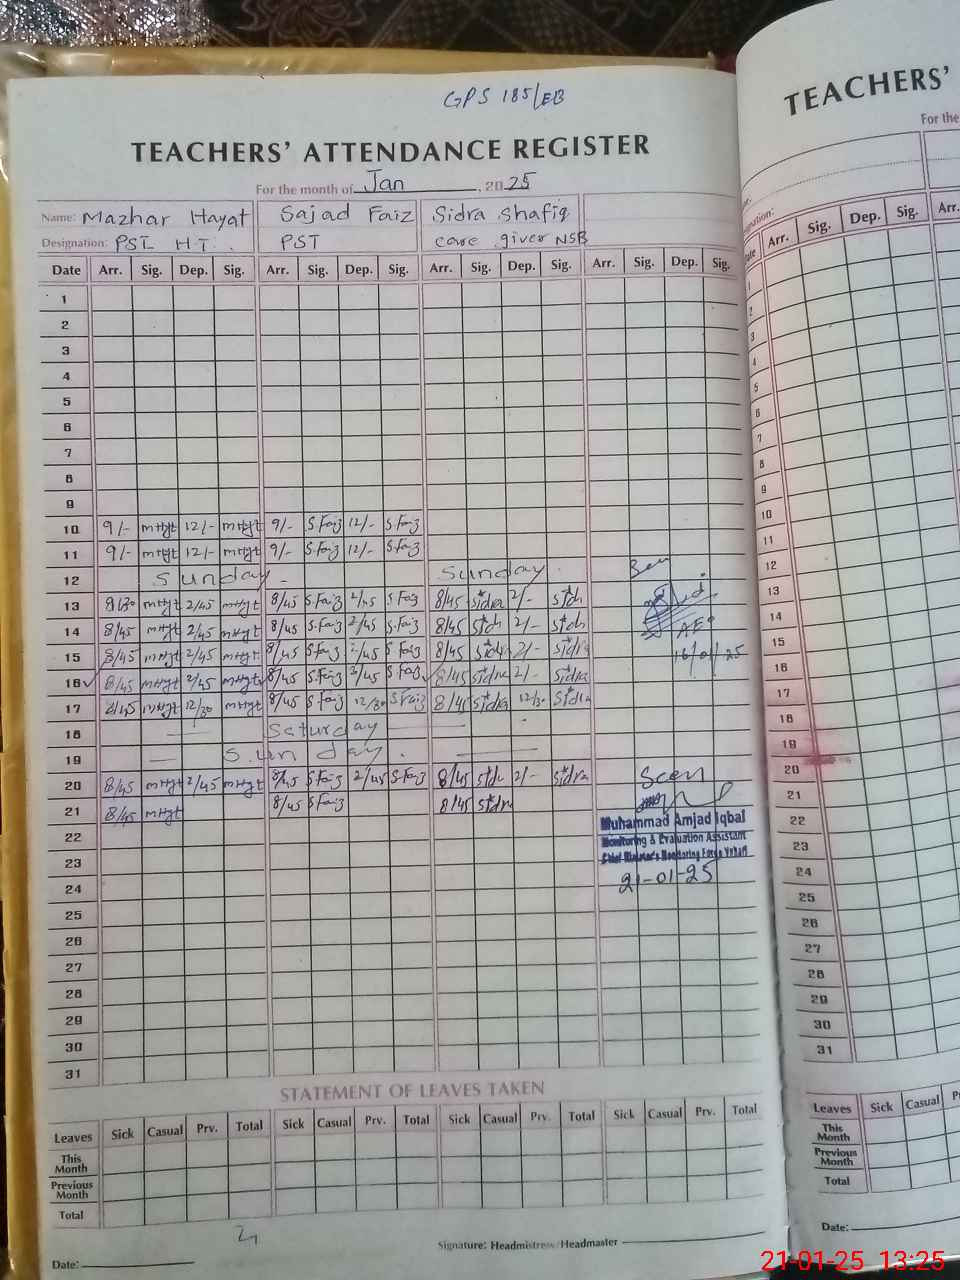 GPS 185/EB
TEACHERS' ATTENDANCE REGISTER
For the month of Jan, 2025
Name: Mazhar Hayat Sajad Faiz Sidra Shafiq
Designation: PST H.T. PST care giver NSB
Date Arr. Sig. Dep. Sig. Arr. Sig. Dep. Sig. Arr. Sig. Dep. Sig. Arr. Sig. Dep. Sig.
1
2
3
4
5
6
7
8
9
10 9/- mHyt 12/- mHyt 9/- S.Faiz 12/- S.Faiz
11 9/- mHyt 12/- mHyt 9/- S.Faiz 12/- S.Faiz
12 Sunday - Sunday.
13 8/30 mHyt 2/45 mHyt 8/45 S.Faiz 2/45 S.Faiz 8/45 sidra 2/- sidr
14 8/45 mHyt 2/45 mHyt 8/45 S.Faiz 2/45 S.Faiz 8/45 sidr 2/- sidr
15 8/45 mHyt 2/45 mHyt 8/45 S.Faiz 2/45 S.Faiz 8/45 sidr 2/- sidra
16 8/45 mHyt 2/45 mHyt 8/45 S.Faiz 2/45 S.Faiz 8/45 sidra 2/- sidra
16/01/25
17 8/45 mHyt 12/30 mHyt 8/45 S.Faiz 12/30 S.Faiz 8/45 sidra 12/30 sidra
18 Saturday
19 Sunday.
20 8/45 mHyt 2/45 mHyt 8/45 S.Faiz 2/45 S.Faiz 8/45 sidr 2/- sidra
Seen
21 8/45 mHyt 8/45 S.Faiz 8/45 sidra
22
Muhammad Amjad Iqbal
Monitoring & Evaluation Assistant
23
Chief Minister's Monitoring Force Vehari
21-01-25
24
25
26
27
28
29
30
31
STATEMENT OF LEAVES TAKEN
Leaves Sick Casual Prv. Total Sick Casual Prv. Total Sick Casual Prv. Total Sick Casual Prv. Total
This Month
Previous Month
Total
Signature: Headmistress/Headmaster
Date:
TEACHERS'
For the
Date Arr. Sig. Dep. Sig. Arr.
1
2
3
4
5
6
7
8
9
10
11
12
13
14
15
16
17
18
19
20
21
22
23
24
25
26
27
28
29
30
31
Leaves Sick Casual
This Month
Previous Month
Total
Date:
21-01-25 13:25